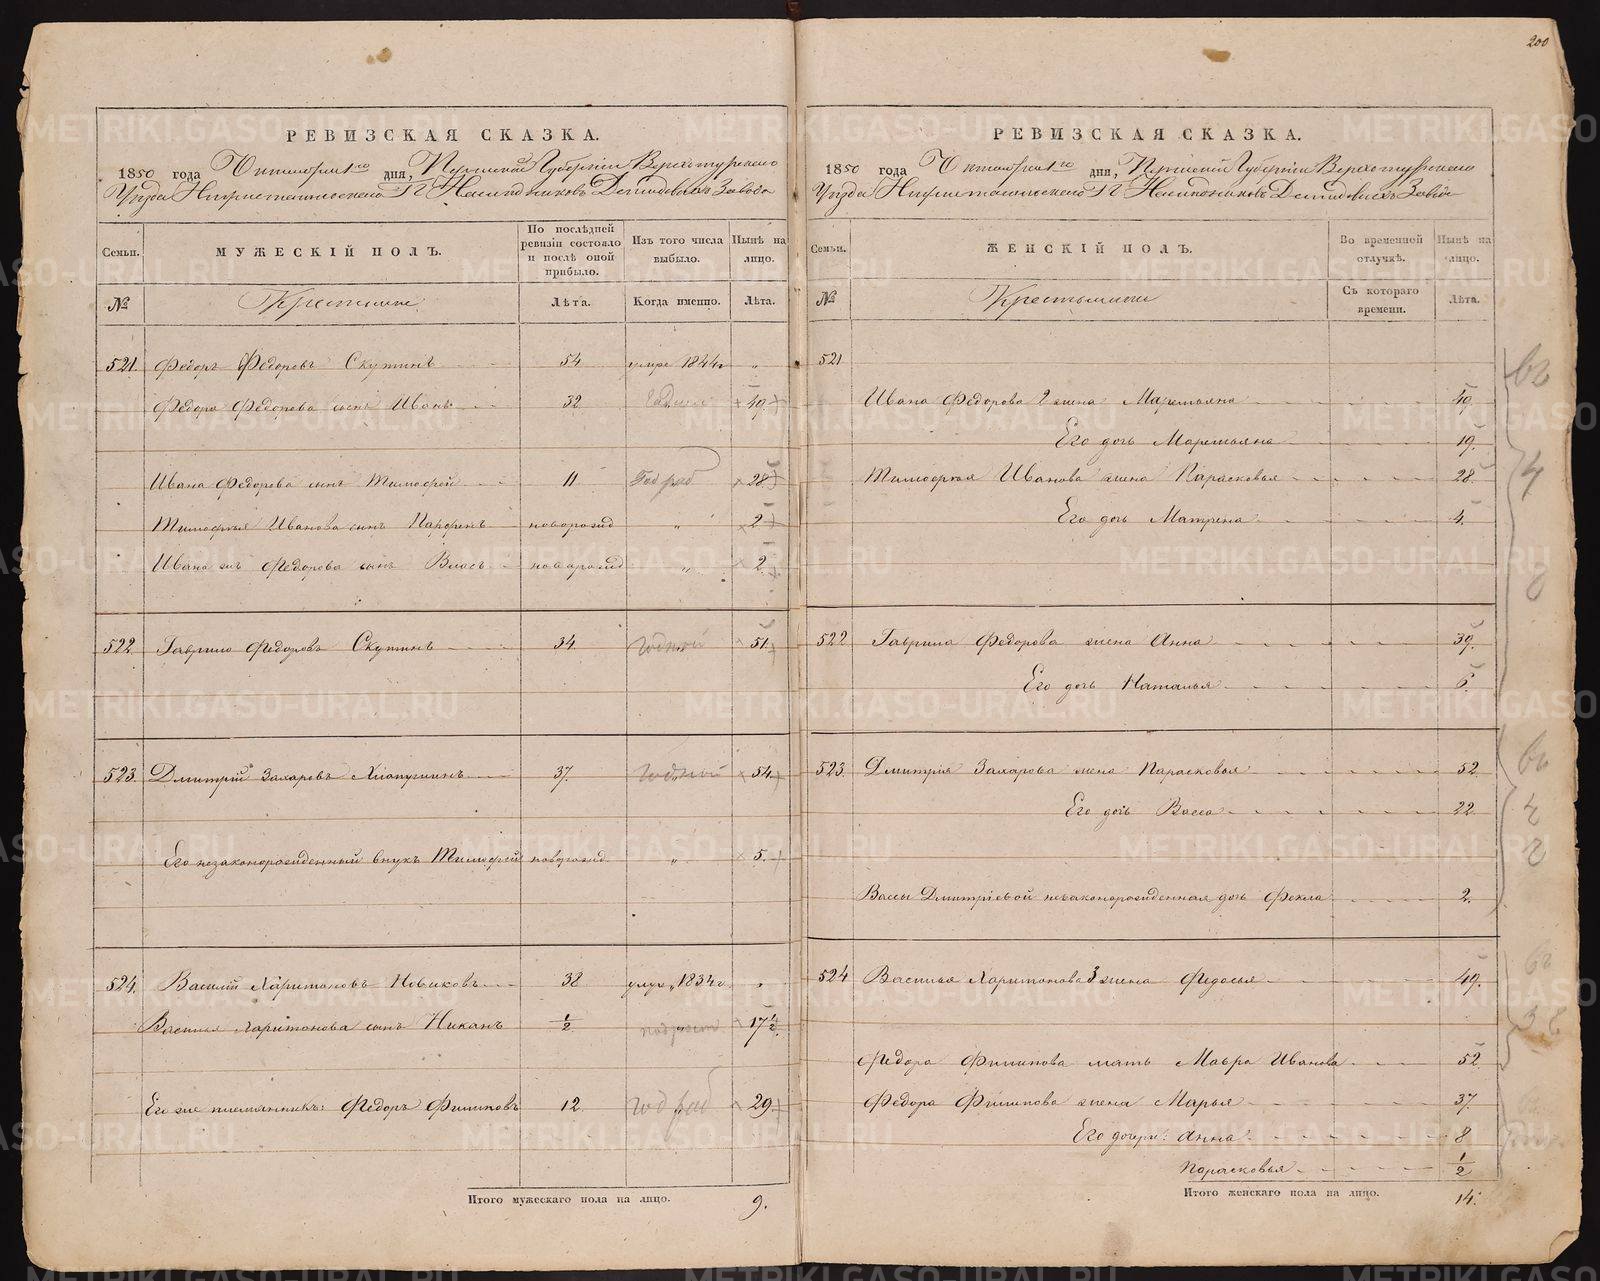 200
РЕВИЗСКАЯ СКАЗКА.
1850 года Октября 1го дня, Пермской Губернiи Верхотурскаго
Уѣзда Нижнетагильскаго ГГ Наслѣдниковъ Демидовыхъ Завода
Семьи.
МУЖЕСКIЙ ПОЛЪ.
По послѣдней ревизiи состояло и послѣ оной прибыло.
Изъ того числа выбыло.
Нынѣ на лицо.
№
Крестьяне
Лѣта.
Когда именно.
Лѣта.
521. Федоръ Федоровъ Скутинъ 54 умре 1844 г „
Федора Федорова сынъ Иванъ 32 годный 49
Ивана Федорова сынъ Тимофей 11 Год раб 28
Тимофея Иванова сынъ Парфенъ новорожд „ 2
Ивана же Федорова сынъ Власъ новорожд „ 2
522. Гаврило Федоровъ Скутинъ 34. годный 51.
523. Дмитрiй Захаровъ 37. годный 54.
Его незаконорожденный внукъ Тимофей новорожд „ 5.
524. Василiй Харитоновъ Новиковъ 38 умре 1834 г. „
Василья Харитонова сынъ Никанъ 1/2 подрост 17 1/2
Его же племянникъ: Федоръ Филиповъ 12. год раб 29.
Итого мужескаго пола на лицо. 9.
РЕВИЗСКАЯ СКАЗКА.
1850 года Октября 1го дня, Пермской Губернiи Верхотурскаго
Уѣзда Нижнетагильскаго ГГ Наслѣдниковъ Демидовыхъ Завода
Семьи.
ЖЕНСКIЙ ПОЛЪ.
Во временной отлучкѣ.
Нынѣ на лицо.
№
Крестьянки
Съ котораго времени.
Лѣта.
521
Ивана Федорова 2 жена Маремьяна 49
Его дочь Маремьяна 19.
Тимофея Иванова жена Парасковья 28
Его дочь Матрена 4.
522 Гаврила Федорова жена Анна 39.
Его дочь Наталья 6.
523. Дмитрiя Захарова жена Парасковья 52
Его дочь Васса 22.
Вассы Дмитрiевой незаконорожденная дочь Фекла 2.
524 Василья Харитонова 3 жена Федосья 49.
Федора Филипова мать Мавра Иванова 52
Федора Филипова жена Марья 37.
Его дочери: Анна 8
Парасковья 1/2
Итого женскаго пола на лицо. 14.
METRIKI.GASO-URAL.RU